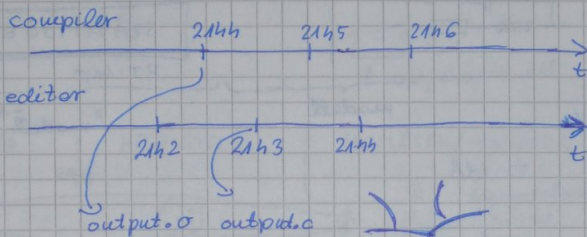 compiler
2144 2145 2146
t
editor
2142 2143 2144
t
output.o output.c